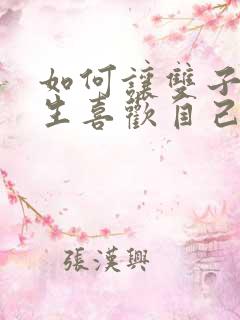 如何讓雙子
生喜歡自己
張漢興